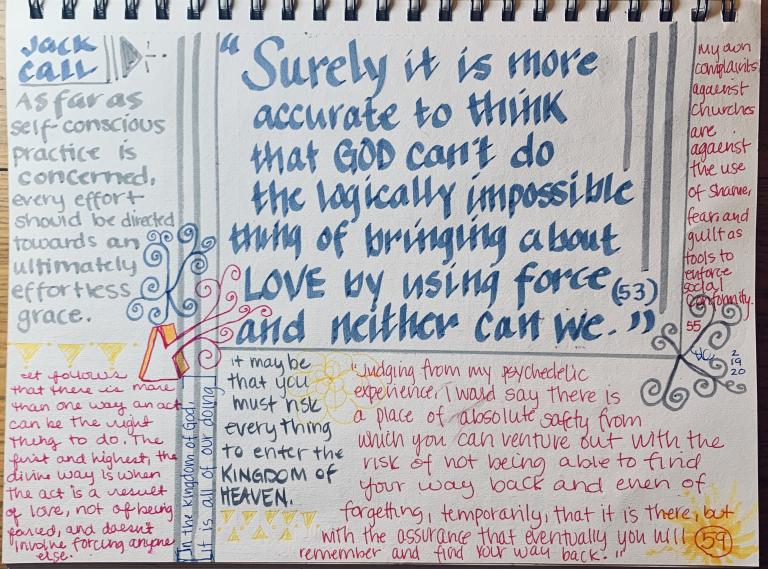 Jack
Call
As far as
self-conscious
practice is
concerned,
every effort
should be directed
towards an
ultimately
effortless
grace.
"Surely it is more
accurate to think
that GOD can't do
the logically impossible
thing of bringing about
LOVE by using force (53)
and neither can we."
My own
complaints
against
churches
are
against
the use
of shame,
fear and
guilt as
tools to
enforce
social
conformity.
55
2
19
20
that there is more
than one way an act
can be the right
thing to do. The
first and highest, the
divine way is when
the act is a result
of love, not of being
forced, and doesn't
involve forcing anyone
else.
In the kingdom of God,
it is all of our doing
it may be
that you
must risk
everything
to enter the
KINGDOM OF
HEAVEN.
"Judging from my psychedelic
experience, I would say there is
a place of absolute safety from
which you can venture out with the
risk of not being able to find
your way back and even of
forgetting, temporarily, that it is there, but
with the assurance that eventually you will
remember and find your way back." 59